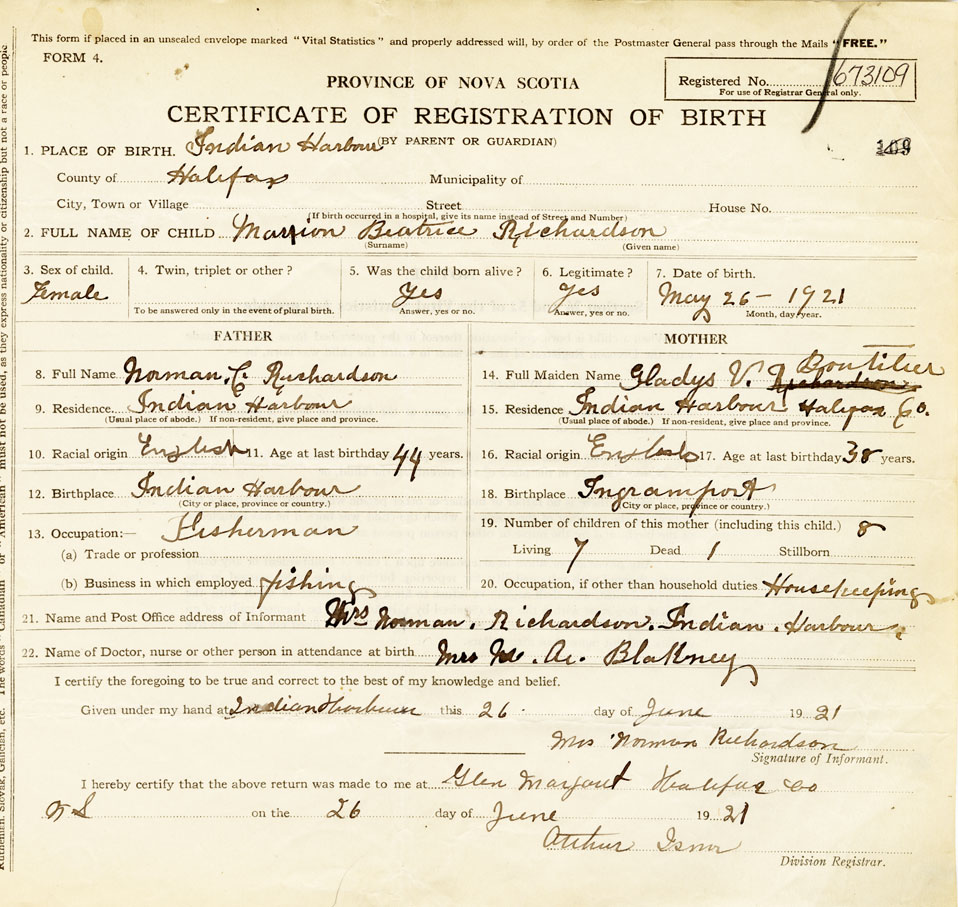 This form if placed in an unsealed envelope marked "Vital Statistics" and properly addressed will, by order of the Postmaster General pass through the Mails "FREE."
FORM 4.
PROVINCE OF NOVA SCOTIA
Registered No. 673109
For use of Registrar General only.
CERTIFICATE OF REGISTRATION OF BIRTH
(BY PARENT OR GUARDIAN)
1. PLACE OF BIRTH. Indian Harbour
County of Halifax Municipality of
City, Town or Village Street House No.
(If birth occurred in a hospital, give its name instead of Street and Number)
2. FULL NAME OF CHILD Marion Beatrice Richardson
(Surname) (Given name)
3. Sex of child. 4. Twin, triplet or other? 5. Was the child born alive? 6. Legitimate? 7. Date of birth.
Female Yes Yes May 26 - 1921
To be answered only in the event of plural birth. Answer, yes or no. Answer, yes or no. Month, day, year.
FATHER
8. Full Name Norman. C. Richardson
9. Residence Indian Harbour
(Usual place of abode.) If non-resident, give place and province.
10. Racial origin English 11. Age at last birthday 44 years.
12. Birthplace Indian Harbour
(City or place, province or country.)
13. Occupation:— Fisherman
(a) Trade or profession
(b) Business in which employed fishing
MOTHER
14. Full Maiden Name Gladys V. Richardson Boutilier
15. Residence Indian Harbour Halifax Co.
(Usual place of abode.) If non-resident, give place and province.
16. Racial origin English 17. Age at last birthday 38 years.
18. Birthplace Ingramport
(City or place, province or country.)
19. Number of children of this mother (including this child.) 8
Living 7 Dead 1 Stillborn
20. Occupation, if other than household duties Housekeeping
21. Name and Post Office address of Informant Mrs Norman. Richardson. Indian. Harbour.
22. Name of Doctor, nurse or other person in attendance at birth. Mrs Blakney
I certify the foregoing to be true and correct to the best of my knowledge and belief.
Given under my hand at Indian Harbour this 26 day of June 1921
Mrs Norman Richardson
Signature of Informant.
I hereby certify that the above return was made to me at Glen Margaret Halifax Co
N S on the 26 day of June 1921
Arthur Isnor
Division Registrar.